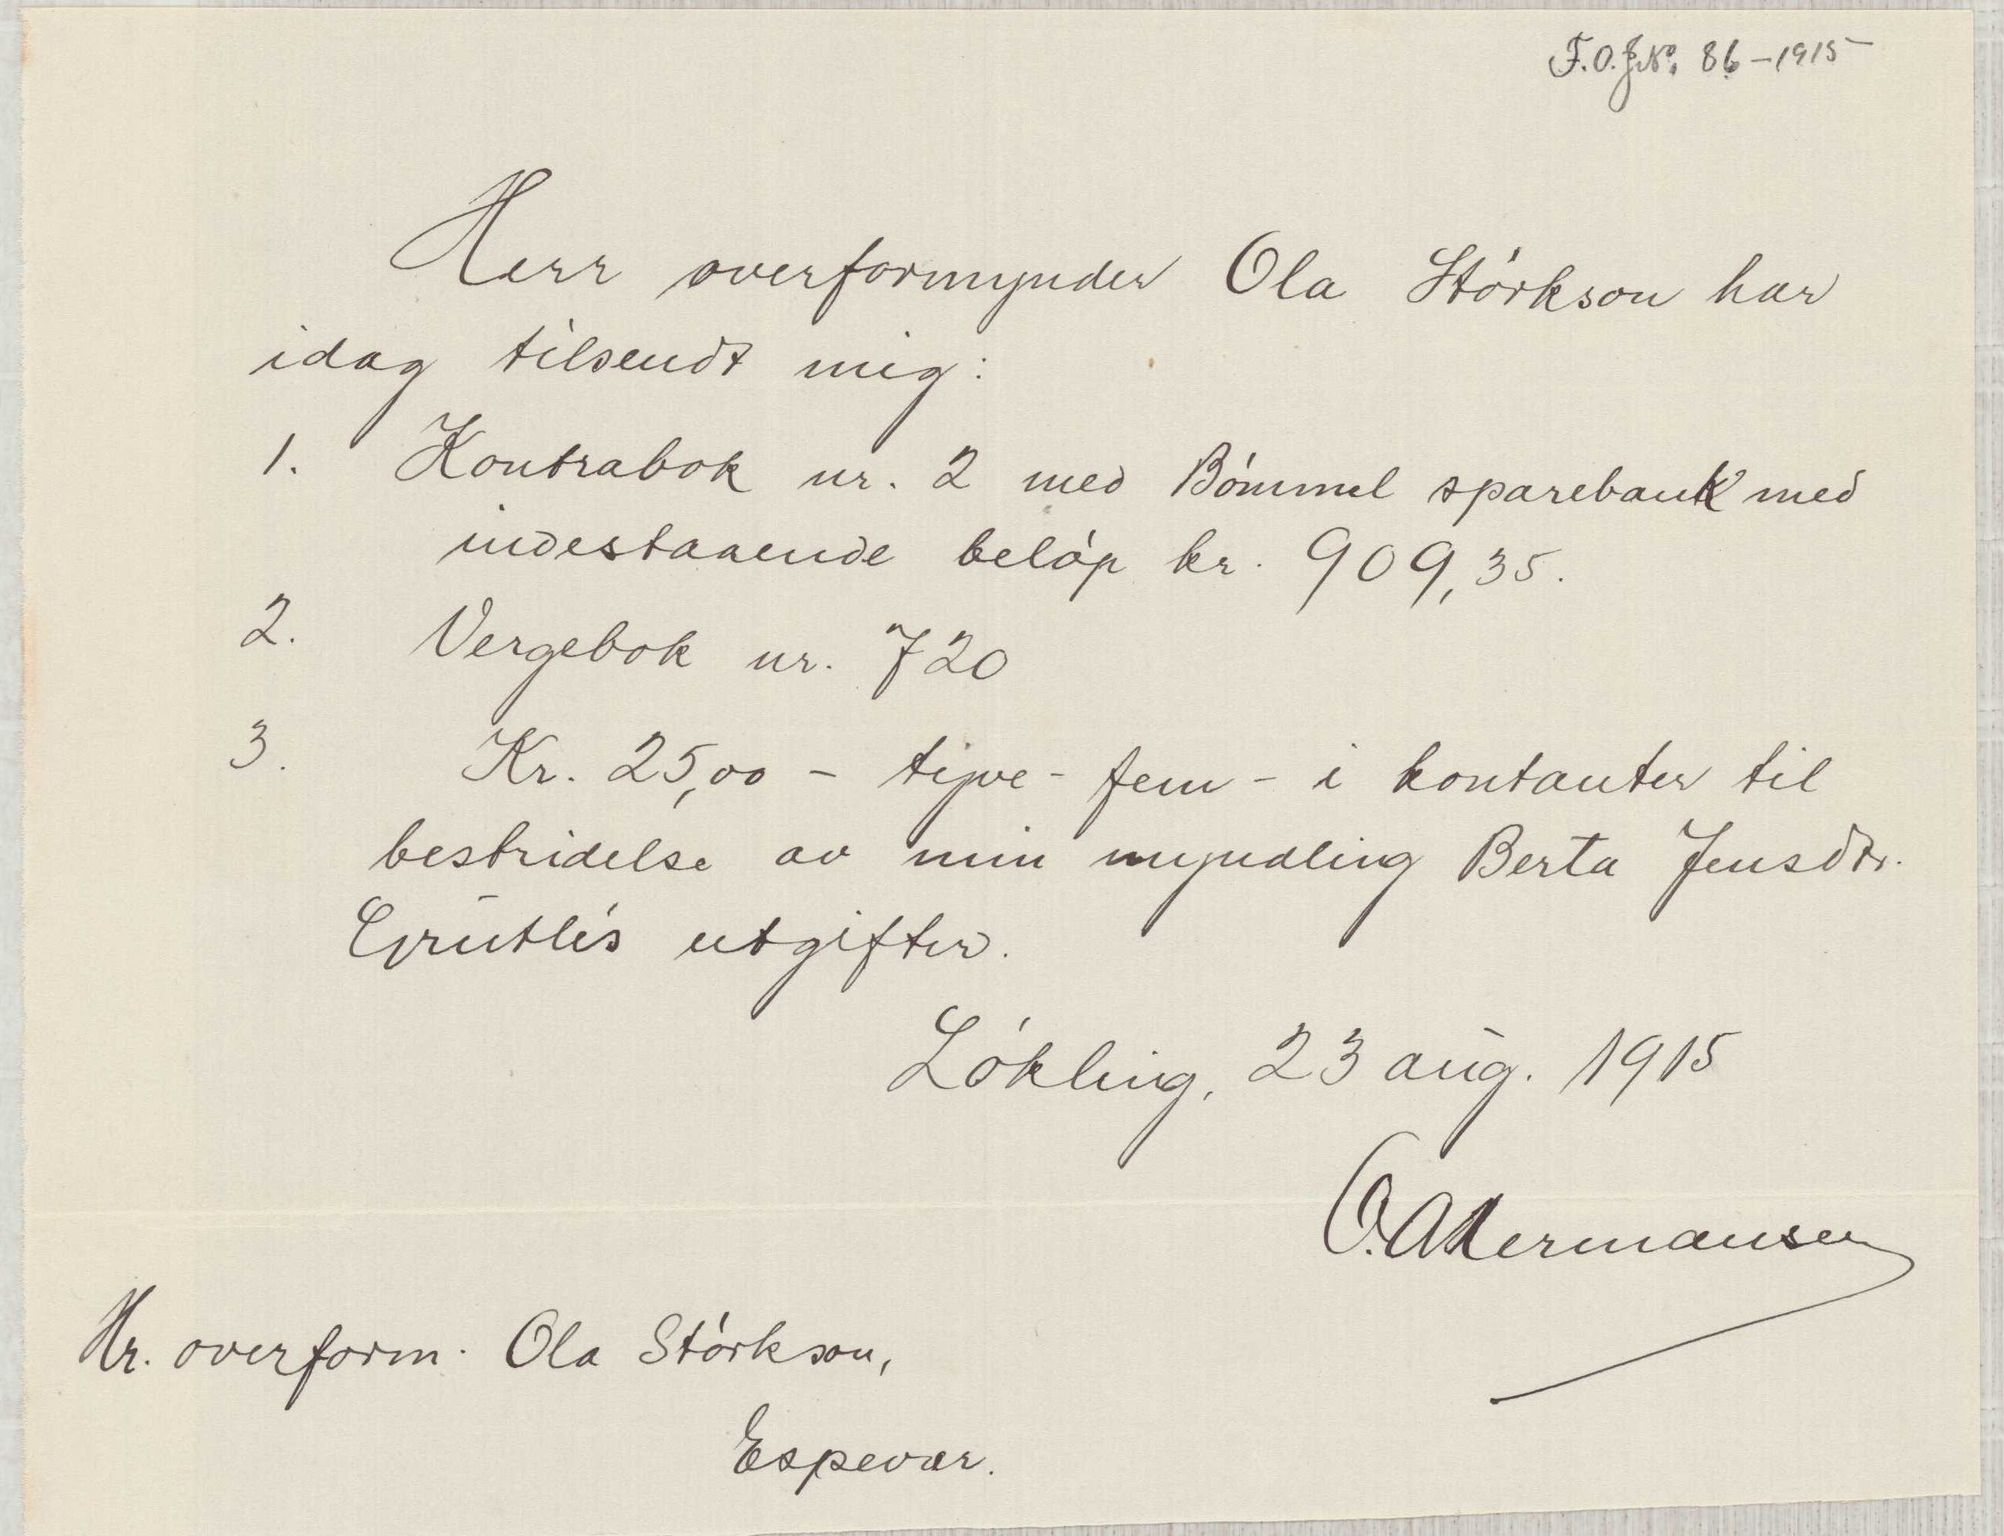 F.O.J.No. 86-1915
Herr overformynder Ola Störkson har
idag tilsendt mig:
1. Kontrabok nr. 2 med Bömmel sparebank med
indestaaende belöp kr. 909,35.
2. Vergebok nr. 720
3. Kr. 25,00 - tjve-fem - i kontanter til
bestridelse av min myndling Berta Jensdtr.
utgifter.
Lökling, 23 aug. 1915
O. Akermansen
Hr. overform. Ola Störkson,
Espevær.